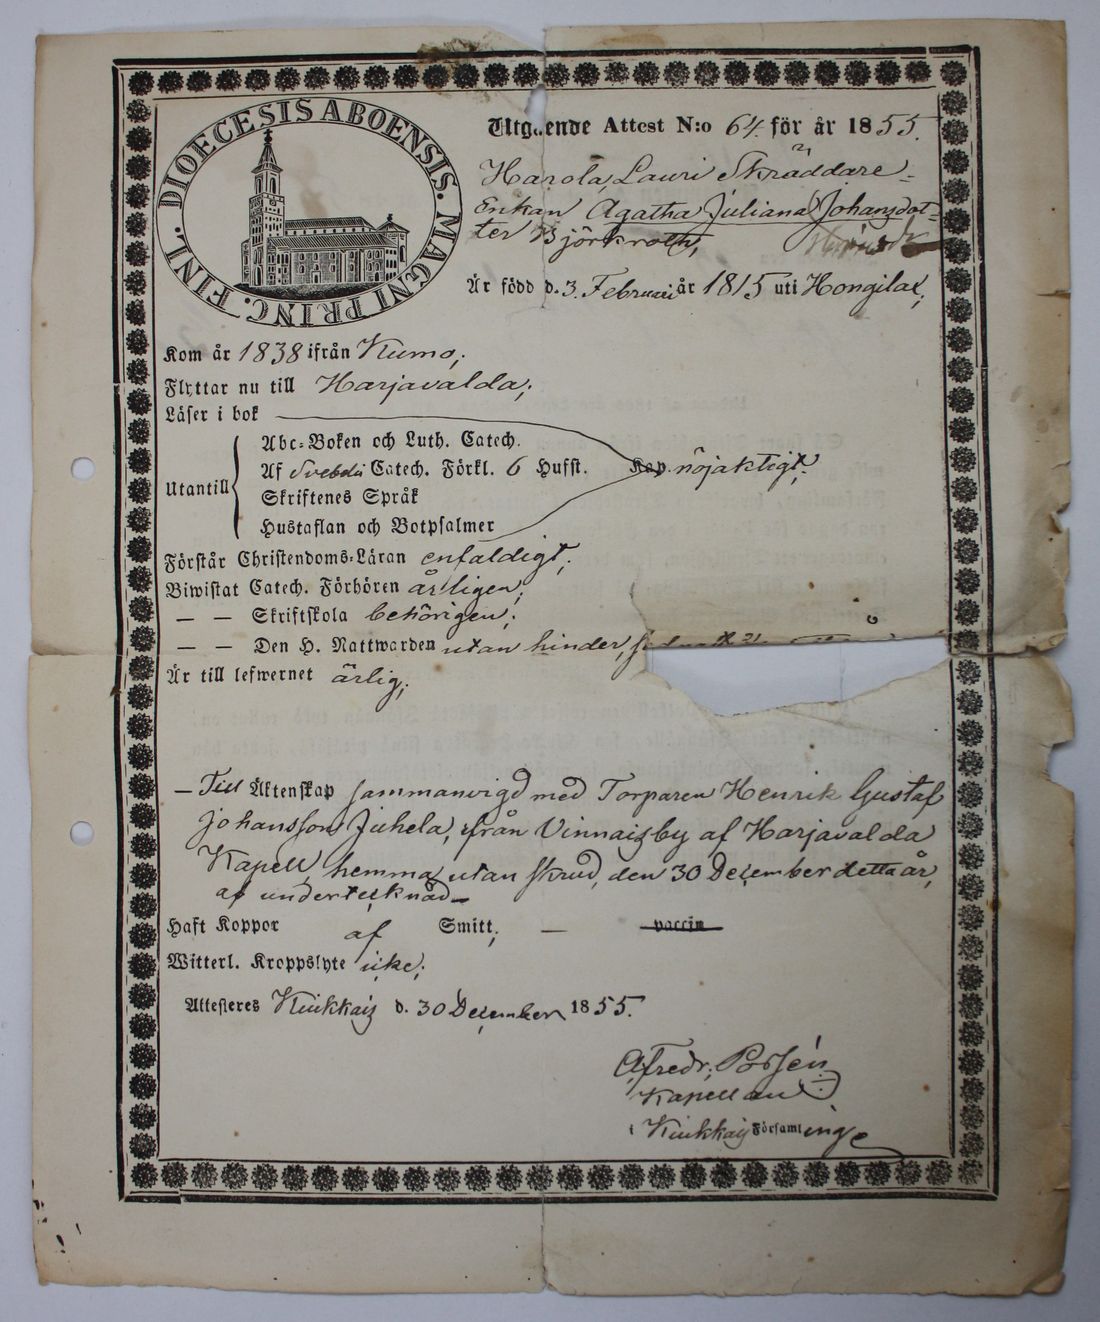 DIOECESIS ABOENSIS. MAGNI PRINC. FINL.
Utgående Attest N:o 64. för år 1855.
Harola, Lauri Skräddare-
Enkan Agatha Juliana Johansdot-
ter Björkroth,
Är född d. 3. Februari år 1815 uti Hongilax;
Kom år 1838 ifrån Kumo;
Flyttar nu till Harjavalda;
Läser i bok
Utantill
Abc-Boken och Luth. Catech.
Af Svebelii Catech. Förkl. 6 Hufst. Kap. nöjaktigt;
Skriftenes Språk
Hustaflan och Botpsalmer
Förstår Christendoms-Läran enfaldigt;
Biwistat Catech. Förhören årligen;
— — Skriftskola behörigen;
— — Den H. Nattwarden utan hinder,
Är till lefwernet ärlig;
— Till Äktenskap sammanvigd med Torparen Henrik Gustaf
Johansson Juhela, ifrån Vinnaisby af Harjavalda
Kapell, hemma, utan skrud, den 30 December detta år,
af undertecknad—
Haft Koppor af Smitt; — vaccin
Witterl. Kroppslyte icke;
Attesteres Kiukkais d. 30 December 1855.
Alfredr. Porsén
Kapellan
i Kiukkais Församl inge